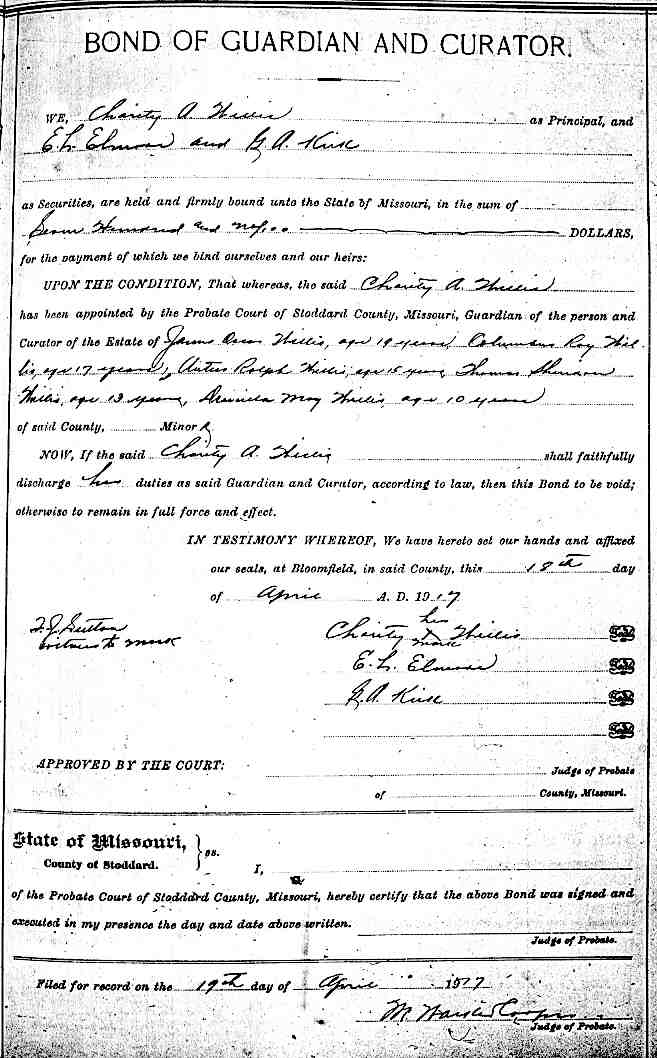 BOND OF GUARDIAN AND CURATOR.
WE, Charity A. Willis as Principal, and
E. L. Elmore and G. A. Kirk
as Securities, are held and firmly bound unto the State of Missouri, in the sum of
Seven Hundred and no/00 DOLLARS,
for the payment of which we bind ourselves and our heirs:
UPON THE CONDITION, That whereas, the said Charity A. Willis
has been appointed by the Probate Court of Stoddard County, Missouri, Guardian of the person and
Curator of the Estate of James Willis, age 19 years Columbus Roy Wil-
lis, age 17 years, Ralph Willis, age 15 years, Thomas
Willis, age 13 years, May Willis, age 10 years
of said County, Minors
NOW, If the said Charity A. Willis shall faithfully
discharge her duties as said Guardian and Curator, according to law, then this Bond to be void;
otherwise to remain in full force and effect.
IN TESTIMONY WHEREOF, We have hereto set our hands and affixed
our seals, at Bloomfield, in said County, this 18th day
of April A. D. 1917
her
Charity X Willis Seal
mark
T. J. Sutton
witness to mark
E. L. Elmore Seal
G. A. Kirk Seal
Seal
APPROVED BY THE COURT:
Judge of Probate
of County, Missouri.
State of Missouri,
County of Stoddard. } ss.
I,
of the Probate Court of Stoddard County, Missouri, hereby certify that the above Bond was signed and
executed in my presence the day and date above written.
Judge of Probate.
Filed for record on the 19th day of April 1917
Cooper
Judge of Probate.